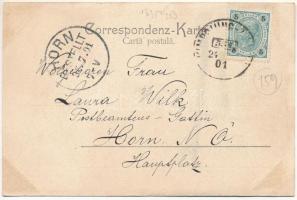 Correspondenz-Karte
Cartă postală.
HORN
5
5
01
Wolgeboren Frau
Laura Wilk
Postbeamtens-Gattin
Horn N. Ö.
Hauptplatz.
(159)